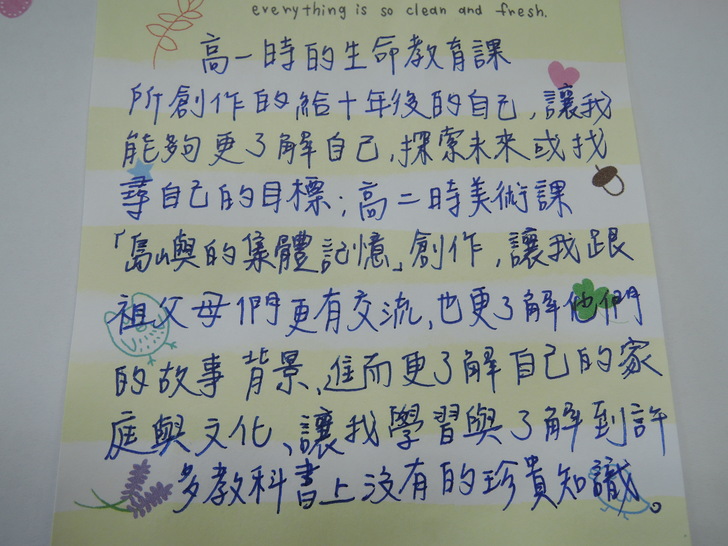 everything is so clean and fresh.
高一時的生命教育課
所創作的給十年後的自己，讓我
能夠更了解自己，探索未來或找
尋自己的目標；高二時美術課
「島嶼的集體記憶」創作，讓我跟
祖父母們更有交流，也更了解他們
的故事背景、進而更了解自己的家
庭與文化、讓我學習與了解到許
多教科書上沒有的珍貴知識。